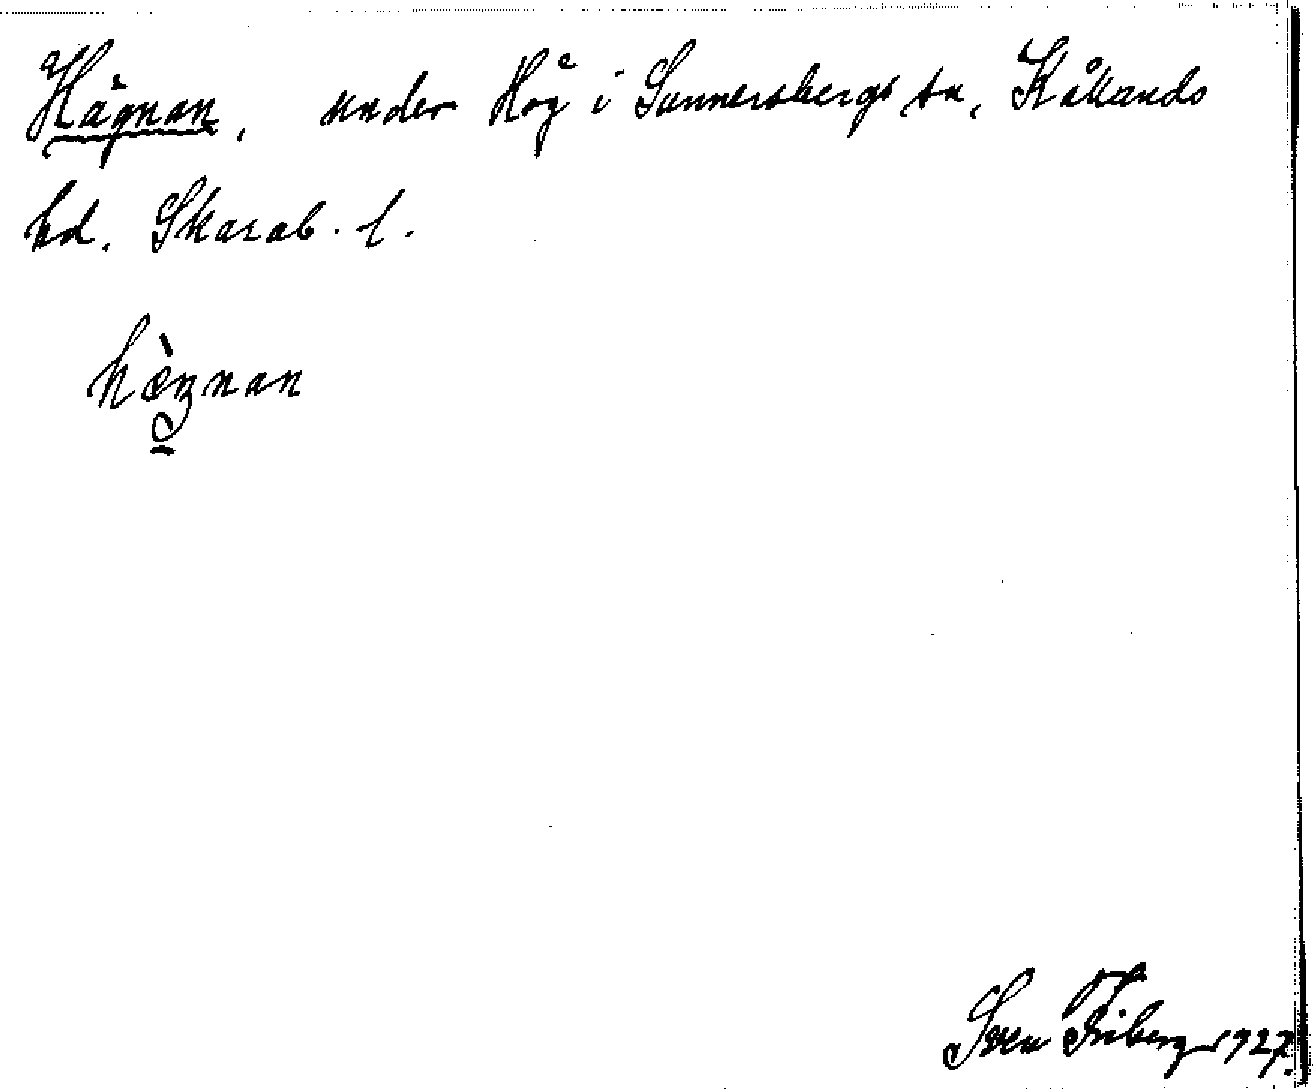 Hägnan, under Hög i Sunnersbergs sn, Kållands
hd. Skarab. l.
hæ̀ŋnan
Sven Friberg 1927.